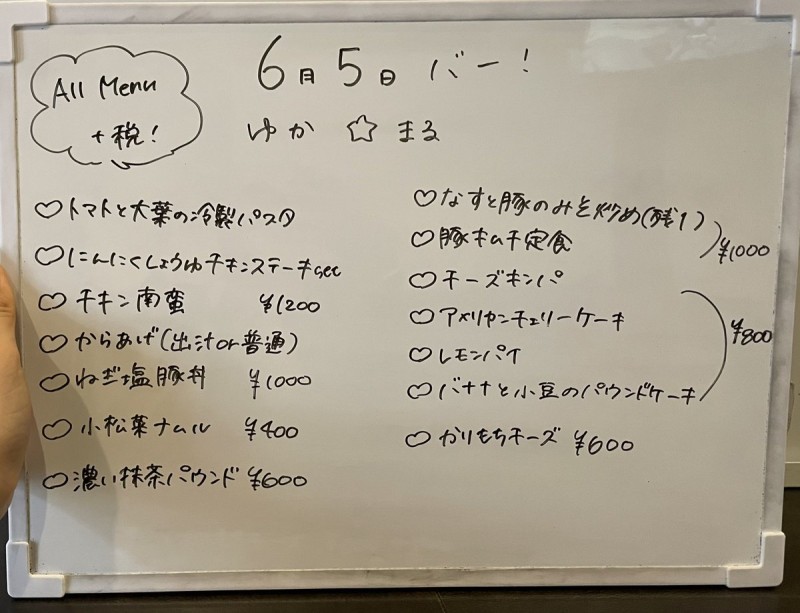 All Menu
+税!
6月5日 バー!
ゆか ☆ まる
♡トマトと大葉の冷製パスタ
♡にんにくしょうゆチキンステーキset
♡チキン南蛮 ¥1200
♡からあげ(出汁or普通)
♡ねぎ塩豚丼 ¥1000
♡小松菜ナムル ¥400
♡濃い抹茶パウンド ¥600
♡なすと豚のみそ炒め(残1)
♡豚キムチ定食
¥1000
♡チーズキンパ
♡アメリカンチェリーケーキ
♡レモンパイ
♡バナナと小豆のパウンドケーキ
¥800
♡かりもちチーズ ¥600